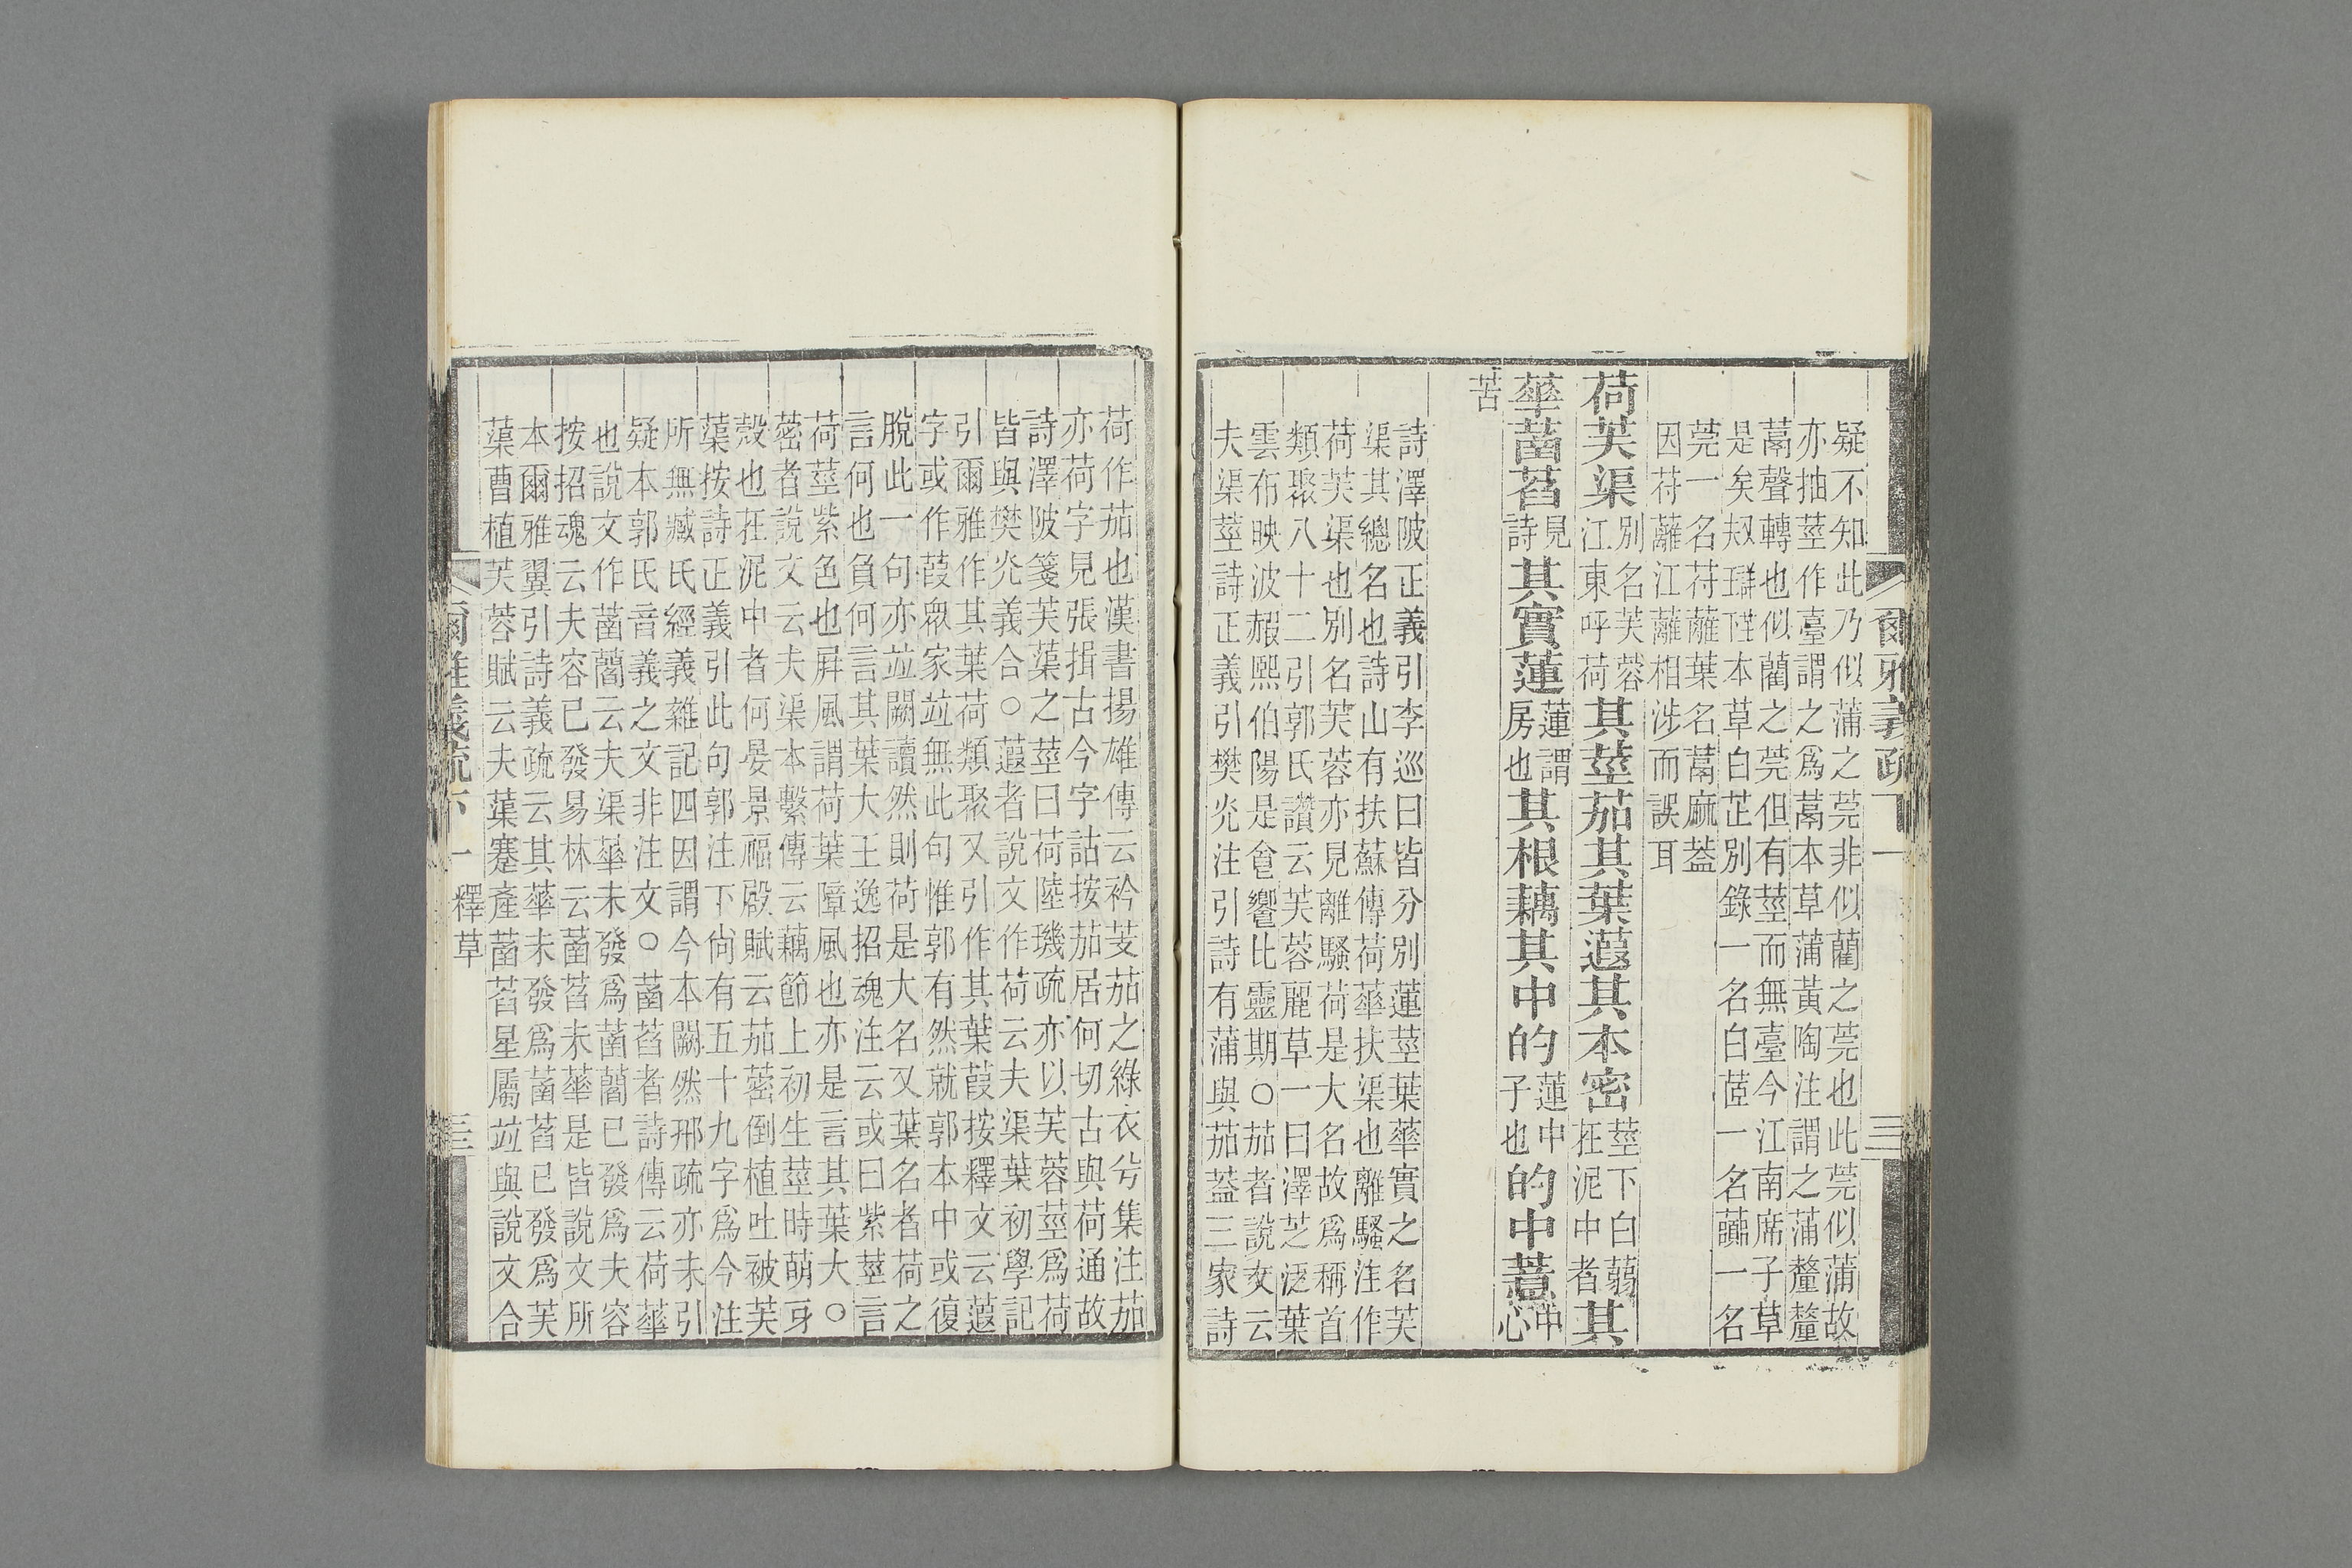 爾雅義疏下一
三
疑不知此乃似蒲之莞非似藺之莞也此莞似蒲故
亦抽莖作臺謂之爲蒚本草蒲黃陶注謂之蒲釐釐
蒚聲轉也似藺之莞但有莖而無臺今江南席子草
是矣本草白芷別錄一名白茝一名虈一名
莞一名苻蘺葉名蒚麻葢
因苻蘺江蘺相涉而誤耳
荷芙渠別名芙蓉江東呼荷其莖茄其葉蕸其本密莖下白蒻在泥中者其
華菡萏見詩其實蓮蓮謂房也其根藕其中的蓮中子也的中薏中心
苦
詩澤陂正義引李巡曰皆分別蓮莖葉華實之名芙
渠其總名也詩山有扶蘇傳荷華扶渠也離騷注作
荷芙渠也別名芙蓉亦見離騷荷是大名故爲稱首
類聚八十二引郭氏讚云芙蓉麗草一曰澤芝泛葉
雲布映波赮熙伯陽是食饗比靈期○茄者說文云
夫渠莖詩正義引樊光注引詩有蒲與茄葢三家詩
荷作茄也漢書揚雄傳云衿芰茄之綠衣兮集注茄
亦荷字見張揖古今字詁按茄居何切古與荷通故
詩澤陂箋芙蕖之莖曰荷陸璣疏亦以芙蓉莖爲荷
皆與樊光義合○蕸者說文作荷云夫渠葉初學記
引爾雅作其葉荷類聚又引作其葉葭按釋文云蕸
字或作葭眾家竝無此句惟郭有然就郭本中或復
脫此一句亦竝闕讀然則荷是大名又葉名者荷之
言何也負何言其葉大王逸招魂注云或曰紫莖言
荷莖紫色也屛風謂荷葉障風也亦是言其葉大○
蔤者說文云夫渠本繫傳云藕節上初生莖時萌芽
殼也在泥中者何晏景福殿賦云茄蔤倒植吐被芙
蕖按詩正義引此句郭注下尙有五十九字爲今注
所無臧氏經義雜記四因謂今本闕然邢疏亦未引
疑本郭氏音義之文非注文○菡萏者詩傳云荷華
也說文作菡藺云夫渠華未發爲菡藺已發爲夫容
按招魂云夫容已發易林云菡萏未華是皆說文所
本爾雅翼引詩義疏云其華未發爲菡萏已發爲芙
蕖曹植芙蓉賦云夫蕖蹇產菡萏星屬竝與說文合
爾雅義疏下一
釋草
三